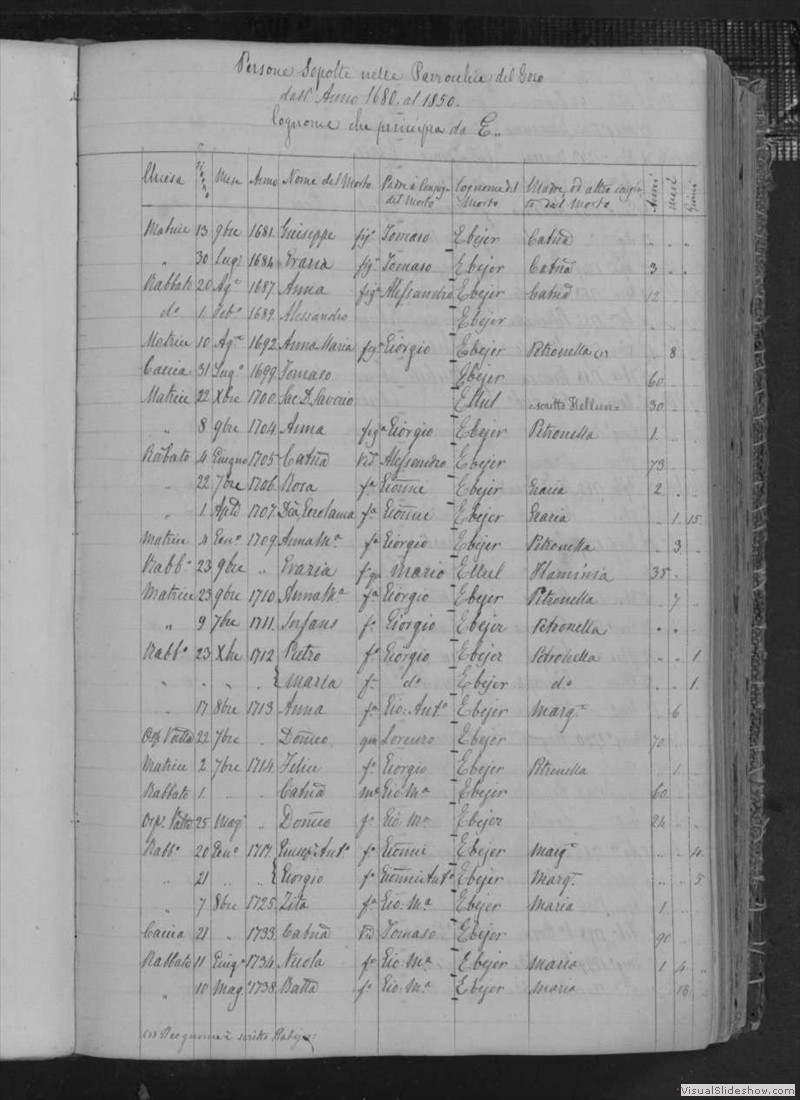 Persone Sepolte nelle Parrochie del Gozo
dall' Anno 1680. al 1850.
Cognome che principia da E..
Chiesa Giorno Mese Anno Nome del Morto Padre o Conjuge del Morto Cognome del Morto Madre, od altro del Morto Anni Mesi Giorni
Matrice 13 9bre 1681. Giuseppe figº Tomaso Ebejer Catnã
" 30 Lugº 1684 Evaria figª Tomaso Ebejer Catnã 3
Rabbato 20 Agº 1687 Anna figª Alessandro Ebejer Catnã 12
dº 1. Febº 1689. Alessandro Ebejer
Matrice 10 Agº 1692 Anna Maria figª Giorgio Ebejer Petronella (1) 8
Caccia 31 Lugº 1699 Tomaso Ebejer 60
Matrice 22 Xbre 1700 Sac. D. Saverio Ellul scritto Hellun 30
" 8 9bre 1704 Anna figª Giorgio Ebejer Petronella 1
Rabbato 4 Giugno 1705 Catnã Vid Alessandro Ebejer 73
" 22 7bre 1706 Rosa fª Gioñe Ebejer Evaria 2
" 1 Aple 1707 Gerolama fª Gioñe Ebejer Evaria 1 15
Matrice 4 Genº 1709 Anna Mª fª Giorgio Ebejer Petronella 3
Rabbº 23 9bre " Evaria mario Ellul Flaminia 35
Matrice 23 9bre 1710 Anna Mª fª Giorgio Ebejer Petronella 7
" 9 7bre 1711 Infans f. Giorgio Ebejer Petronella
Rabbº 23 Xbre 1712 Pietro fº Giorgio Ebejer Petronella 1
" " " " { maria f. dº Ebejer dº 1
" 17 8bre 1713 Anna fª Gio: Antº Ebejer Margª 6
22 7bre " Doñico qm Lorenzo Ebejer 70
Matrice 2 7bre 1714 Felice fº Giorgio Ebejer Petronella 1
Rabbato 1 " " Catnã Gio Mª Ebejer 60
25 Mag " Doñico fº Gio: Mª Ebejer 24
Rabbº 20 Genº 1717 Giusepe Antº fº Gioñe Ebejer Margª 4
" 21 " " { Giorgio fº Gioñe Antº Ebejer Margª 5
" 7 8bre 1725 Zita fª Gio: Mª Ebejer Maria 1
Caccia 21 " 1733 Catnã Vid Tomaso Ebejer 90
Rabbato 11 Giugº 1734 Nicola fº Gio: Mª Ebejer Maria 1 4
" 10 Magº 1738 Batta fº Gio: Mª Ebejer Maria 18
(1) scritto
VisualSlideshow.com